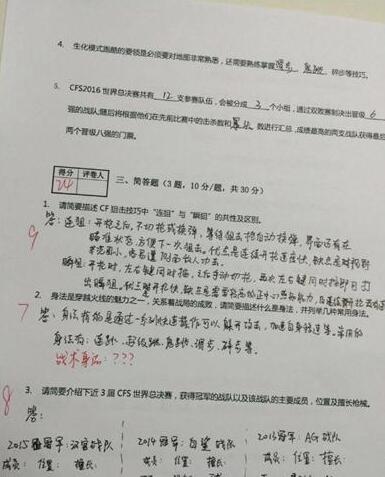 4. 生化模式逃跑的要领是必须要对地图非常熟悉，还需要熟练掌握 碎步等技巧。
5. CFS2016 世界总决赛共有 12 支参赛队伍，会被分成 3 个小组，通过双败赛制决出晋级 6
强的战队;随后将根据他们在先前比赛中的击杀数和 数进行汇总，成绩最高的两支战队获得最后
两个晋级八强的门票。
得分 评卷人
24
三、简答题（3 题，10 分/题，共 30 分）
1. 请简要描述 CF 狙击技巧中“连狙”与“瞬狙”的共性及区别。
答：连狙：开枪之后，不切枪或换弹，等待狙击枪自动换弹，界面还有在
瞄准状态，方便下一次狙击。优点是连续开枪速度快，缺点是对视野
9
瞬狙：开枪时，左右键同时按，之后手动切枪，再次左右键同时按即可打
出瞬狙。
2. 身法是穿越火线的魅力之一，关系着战局的成败，请简要描述什么是身法，并列举几种常用身法。
7
答，身法指的是通过一系列快速操作可以躲开攻击，加速自身移速等。常用的
身法有：连跳、超级跳、鬼跳、滑步、碎步等。
战术身法：？？？
3. 请简要介绍下近 3 届 CFS 世界总决赛，获得冠军的战队以及该战队的主要成员，位置及擅长枪械。
8
答：
2015 冠军：汉宫战队 2014 冠军：白鲨 战队 2013冠军：AG 战队
成员： 位置： 擅长： 成员： 位置： 擅长： 成员： 位置： 擅长：